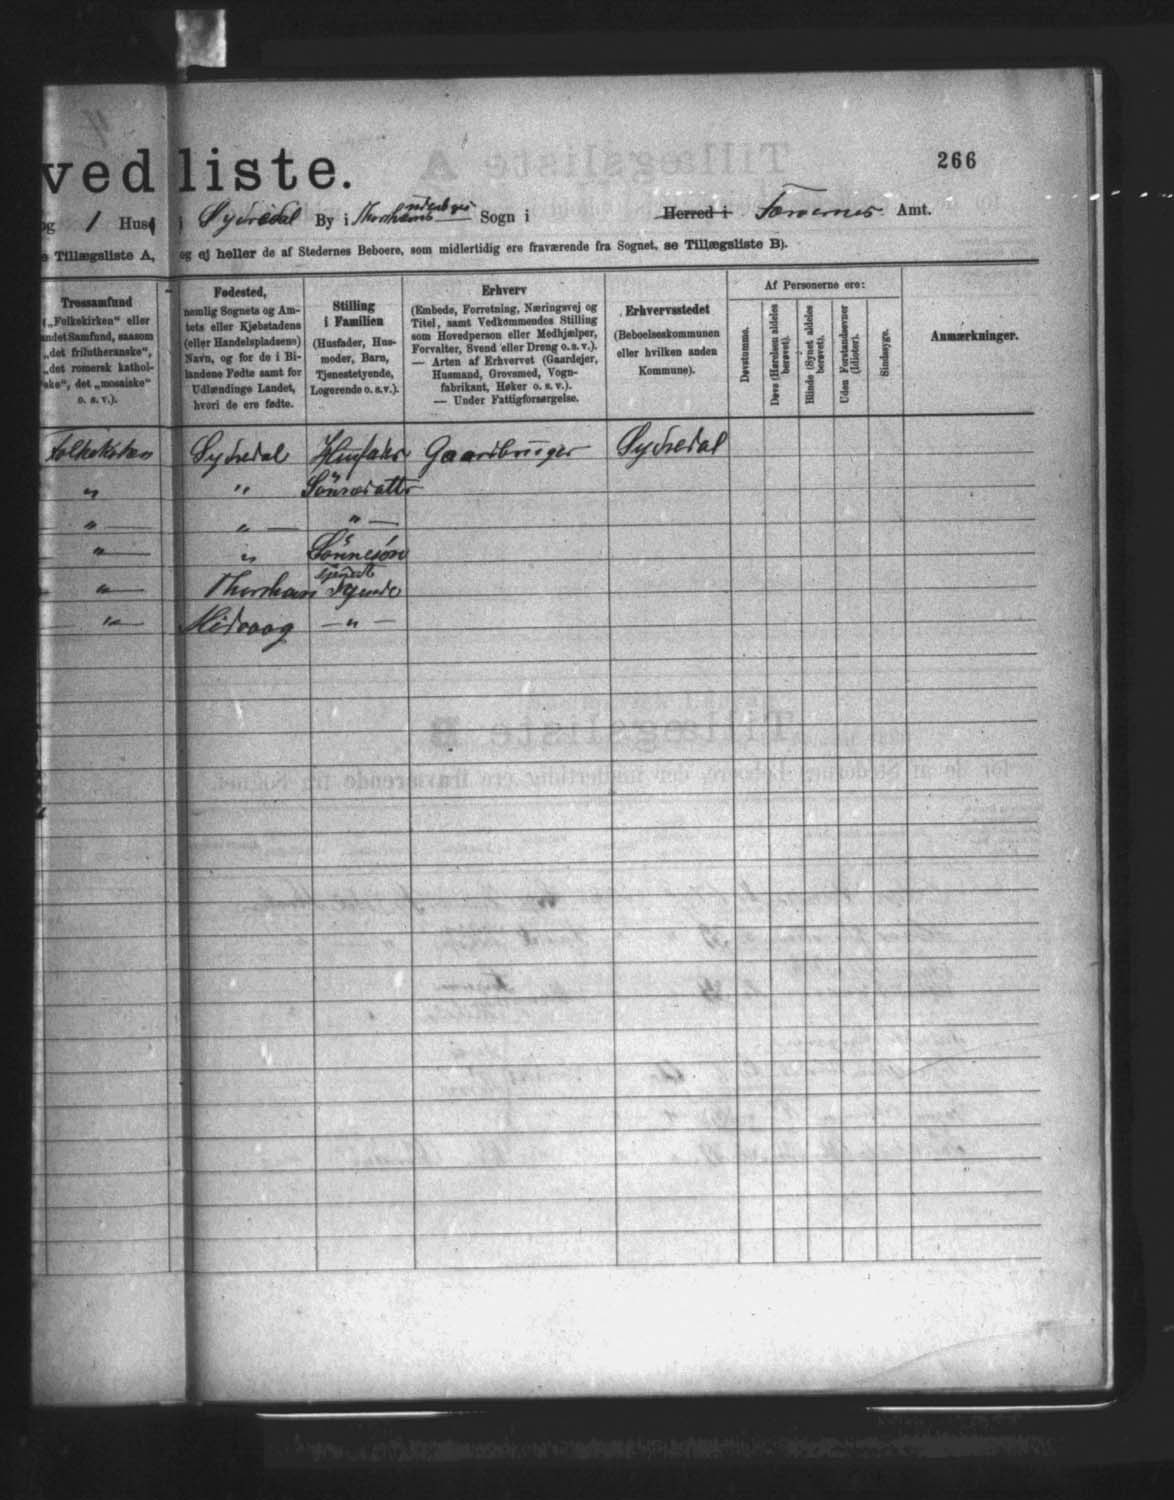 vedliste.
266
og 1 Huse i Sydredal By i Thorshavns Sogn i Herred i Færøernes Amt.
e Tillægsliste A, og ej heller de af Stedernes Beboere, som midlertidig ere fraværende fra Sognet, se Tillægsliste B).
Trossamfund
(„Folkekirken" eller
andet Samfund, saasom
„det frilutheranske",
„det romersk kathol-
ske", det „mosaiske"
o. s. v.).
Fødested,
nemlig Sognets og Am-
tets eller Kjøbstadens
(eller Handelspladsens)
Navn, og for de i Bi-
landene Fødte samt for
Udlændinge Landet,
hvori de ere fødte.
Stilling
i Familien
(Husfader, Hus-
moder, Barn,
Tjenestetyende,
Logerende o. s. v.).
Erhverv
(Embede, Forretning, Næringsvej og
Titel, samt Vedkommendes Stilling
som Hovedperson eller Medhjælper,
Forvalter, Svend eller Dreng o.s.v.).
— Arten af Erhvervet (Gaardejer,
Husmand, Grovsmed, Vogn-
fabrikant, Høker o. s. v.).
— Under Fattigforsørgelse.
Erhvervsstedet
(Beboelseskommunen
eller hvilken anden
Kommune).
Af Personerne ere:
Døvstumme.
Døve (Hørelsen aldeles
berøvet).
Blinde (Synet aldeles
berøvet).
Uden Forstandsevner
(Idioter).
Sindssyge.
Anmærkninger.
Folkekirken Sydredal Husfader Gaardbruger Sydredal
" " Sönnedatter
" — " — " —
" — " Sönnesön
" — Thorshavn Tyende
" — Midvaag — " —